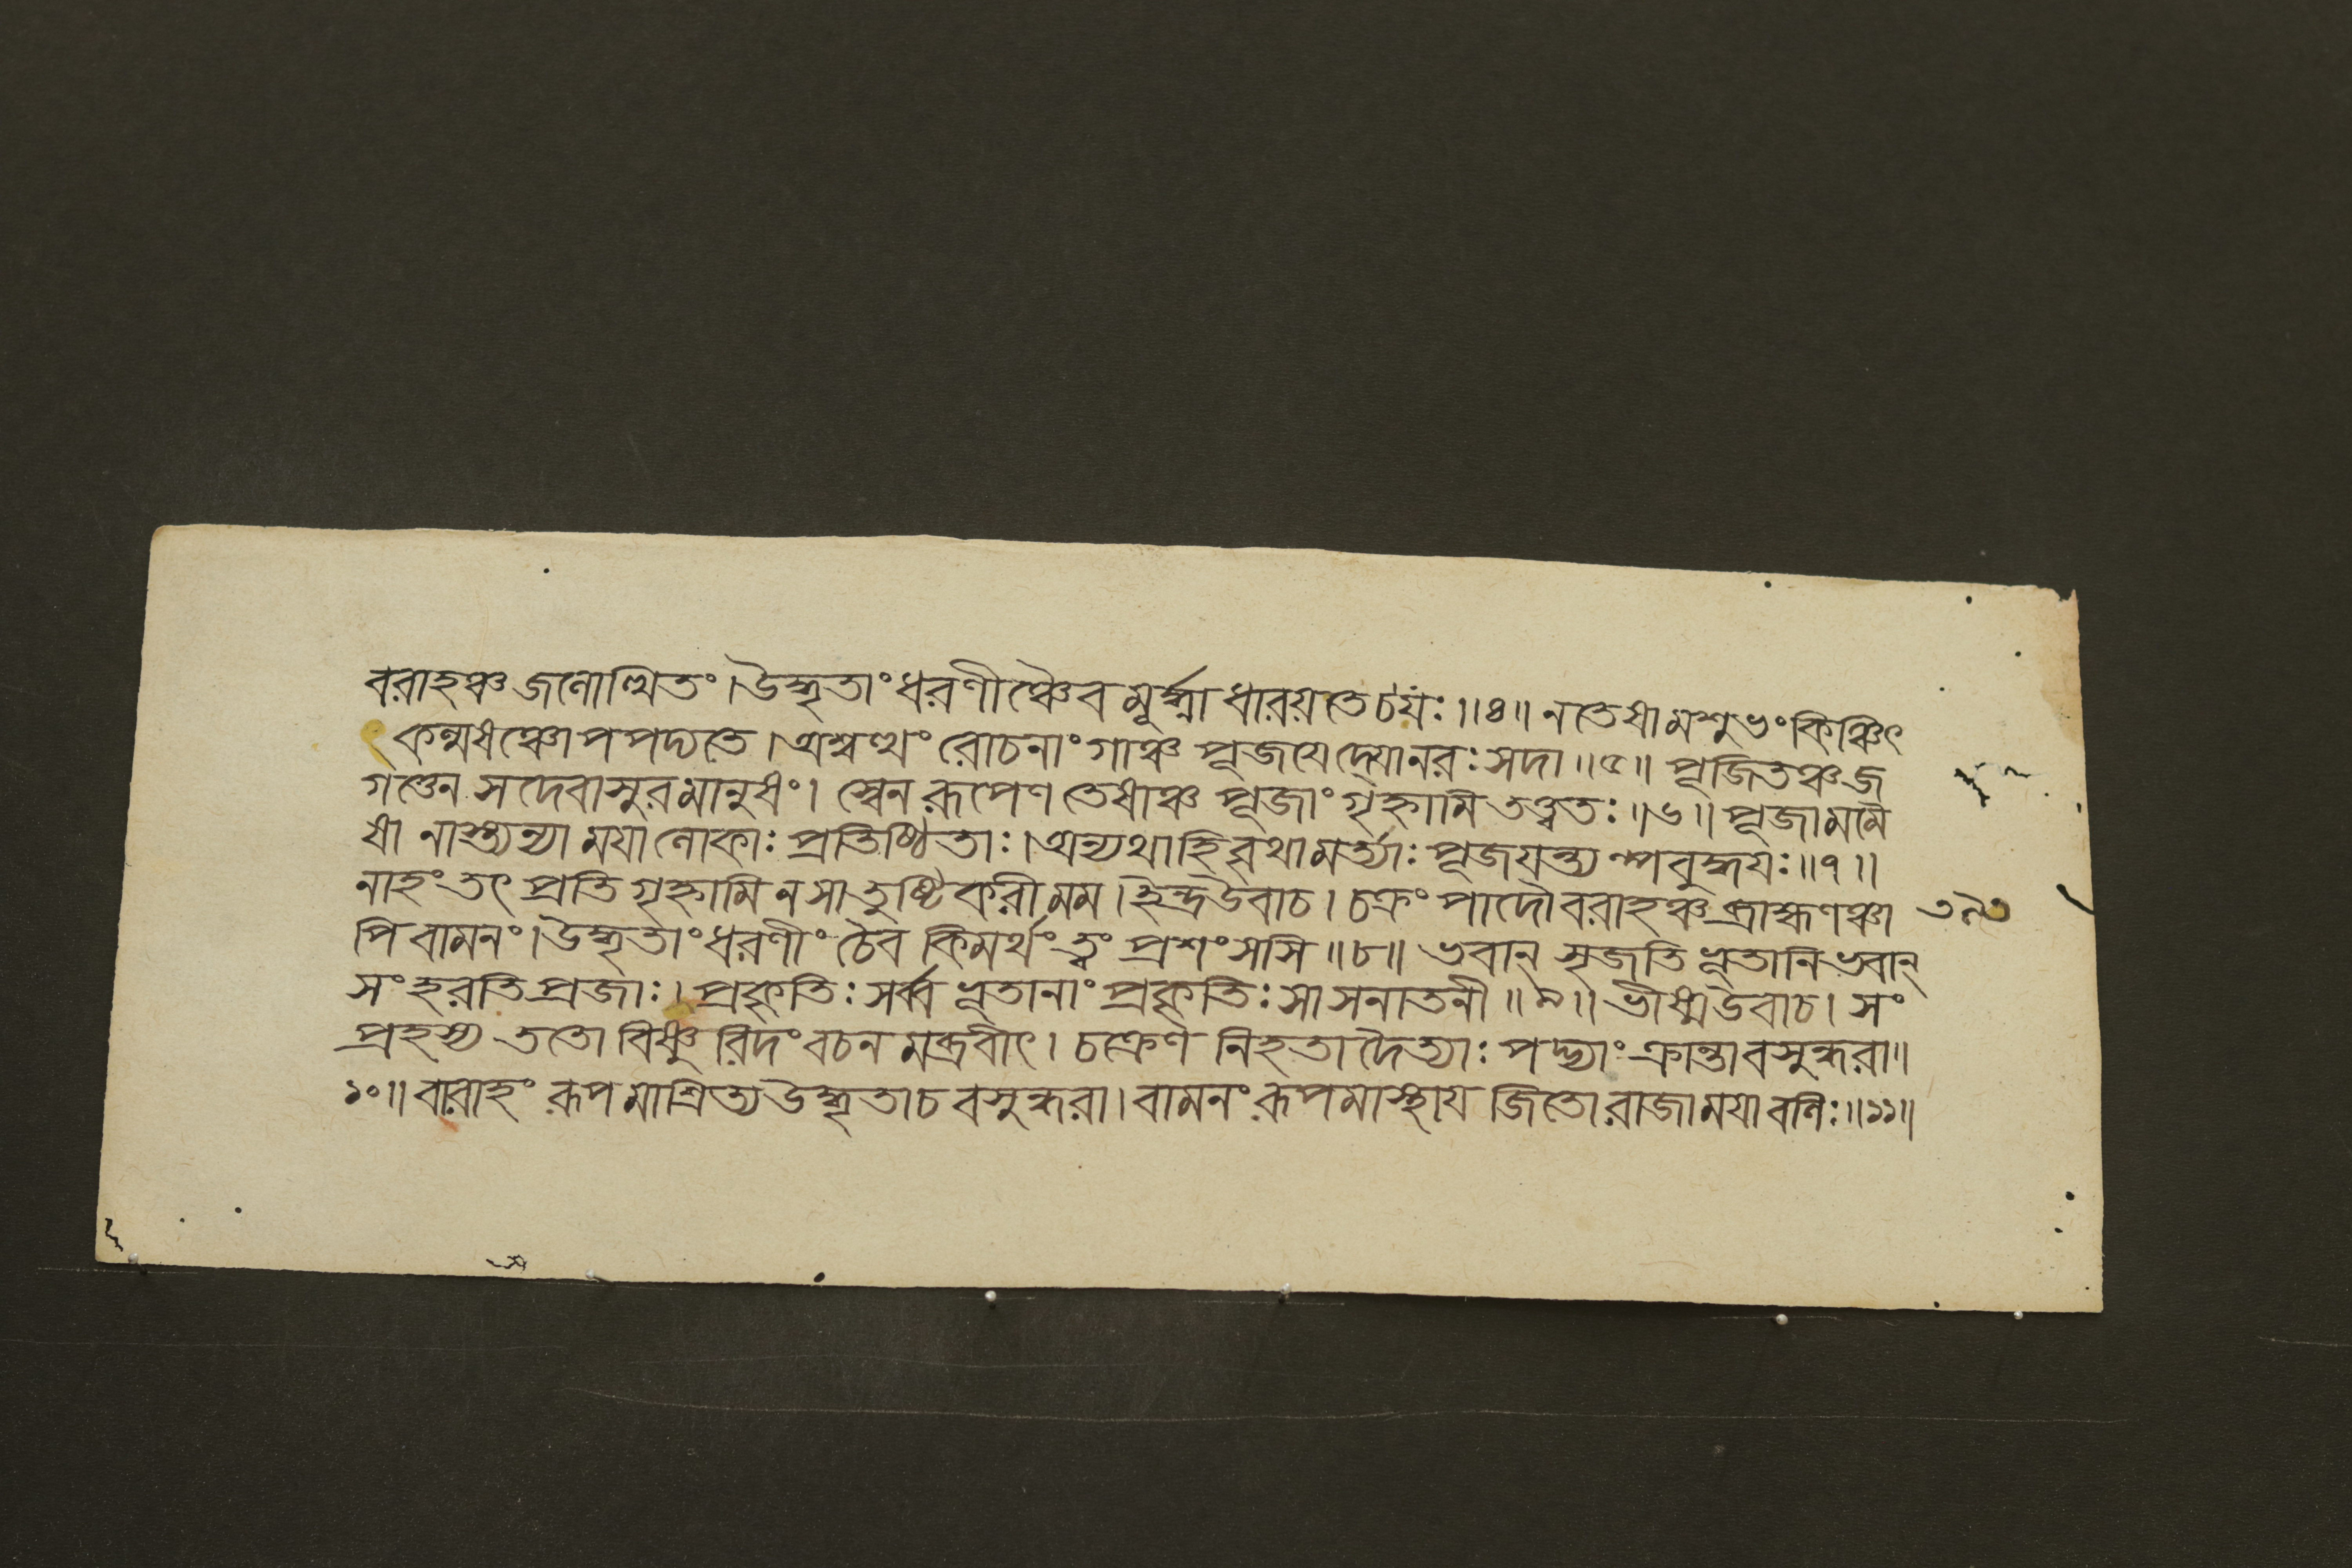 বরাহঞ্চ জলোত্থিতং। উদ্ধৃতাং ধরণীঞ্চৈব মূর্দ্ধ্না ধারয়তে চ যঃ॥৪॥ ন তেষামশুভং কিঞ্চিৎ
কল্মষঞ্চোপপদ্যতে। অশ্বত্থং রোচনাং গাঞ্চ পূজয়েদ্যো নরঃ সদা॥৫॥ পূজিতঞ্চ জ
গত্তেন সদেবাসুরমানুষং। স্বেন রূপেণ তেষাঞ্চ পূজাং গৃহ্নামি তত্ত্বতঃ॥৬॥ পূজা মমৈ
ষা নাস্ত্যন্যা ময়া লোকাঃ প্রতিষ্ঠিতাঃ। অন্যথা হি বৃথা মর্ত্ত্যাঃ পূজয়ন্ত্যল্পবুদ্ধয়ঃ॥৭॥
নাহং তৎ প্রতিগৃহ্নামি ন সা তুষ্টিকরী মম। ইন্দ্র উবাচ। চক্রং পাদৌ বরাহঞ্চ ব্রাহ্মণঞ্চা
পি বামনং। উদ্ধৃতাং ধরণীং চৈব কিমর্থং ত্বং প্রশংসসি॥৮॥ ভবান্ সৃজতি ভূতানি ভবান্
সংহরতি প্রজাঃ। প্রকৃতিঃ সর্ব্বভূতানাং প্রকৃতিঃ সা সনাতনী॥৯॥ ভীষ্ম উবাচ। সং
প্রহস্য ততো বিষ্ণুরিদং বচনমব্রবীৎ। চক্রেণ নিহতা দৈত্যাঃ পদ্ভ্যাং ক্রান্তা বসুন্ধরা॥
১০॥ বারাহং রূপমাশ্রিত্য উদ্ধৃতা চ বসুন্ধরা। বামনং রূপমাস্থায় জিতো রাজা ময়া বলিঃ॥১১॥